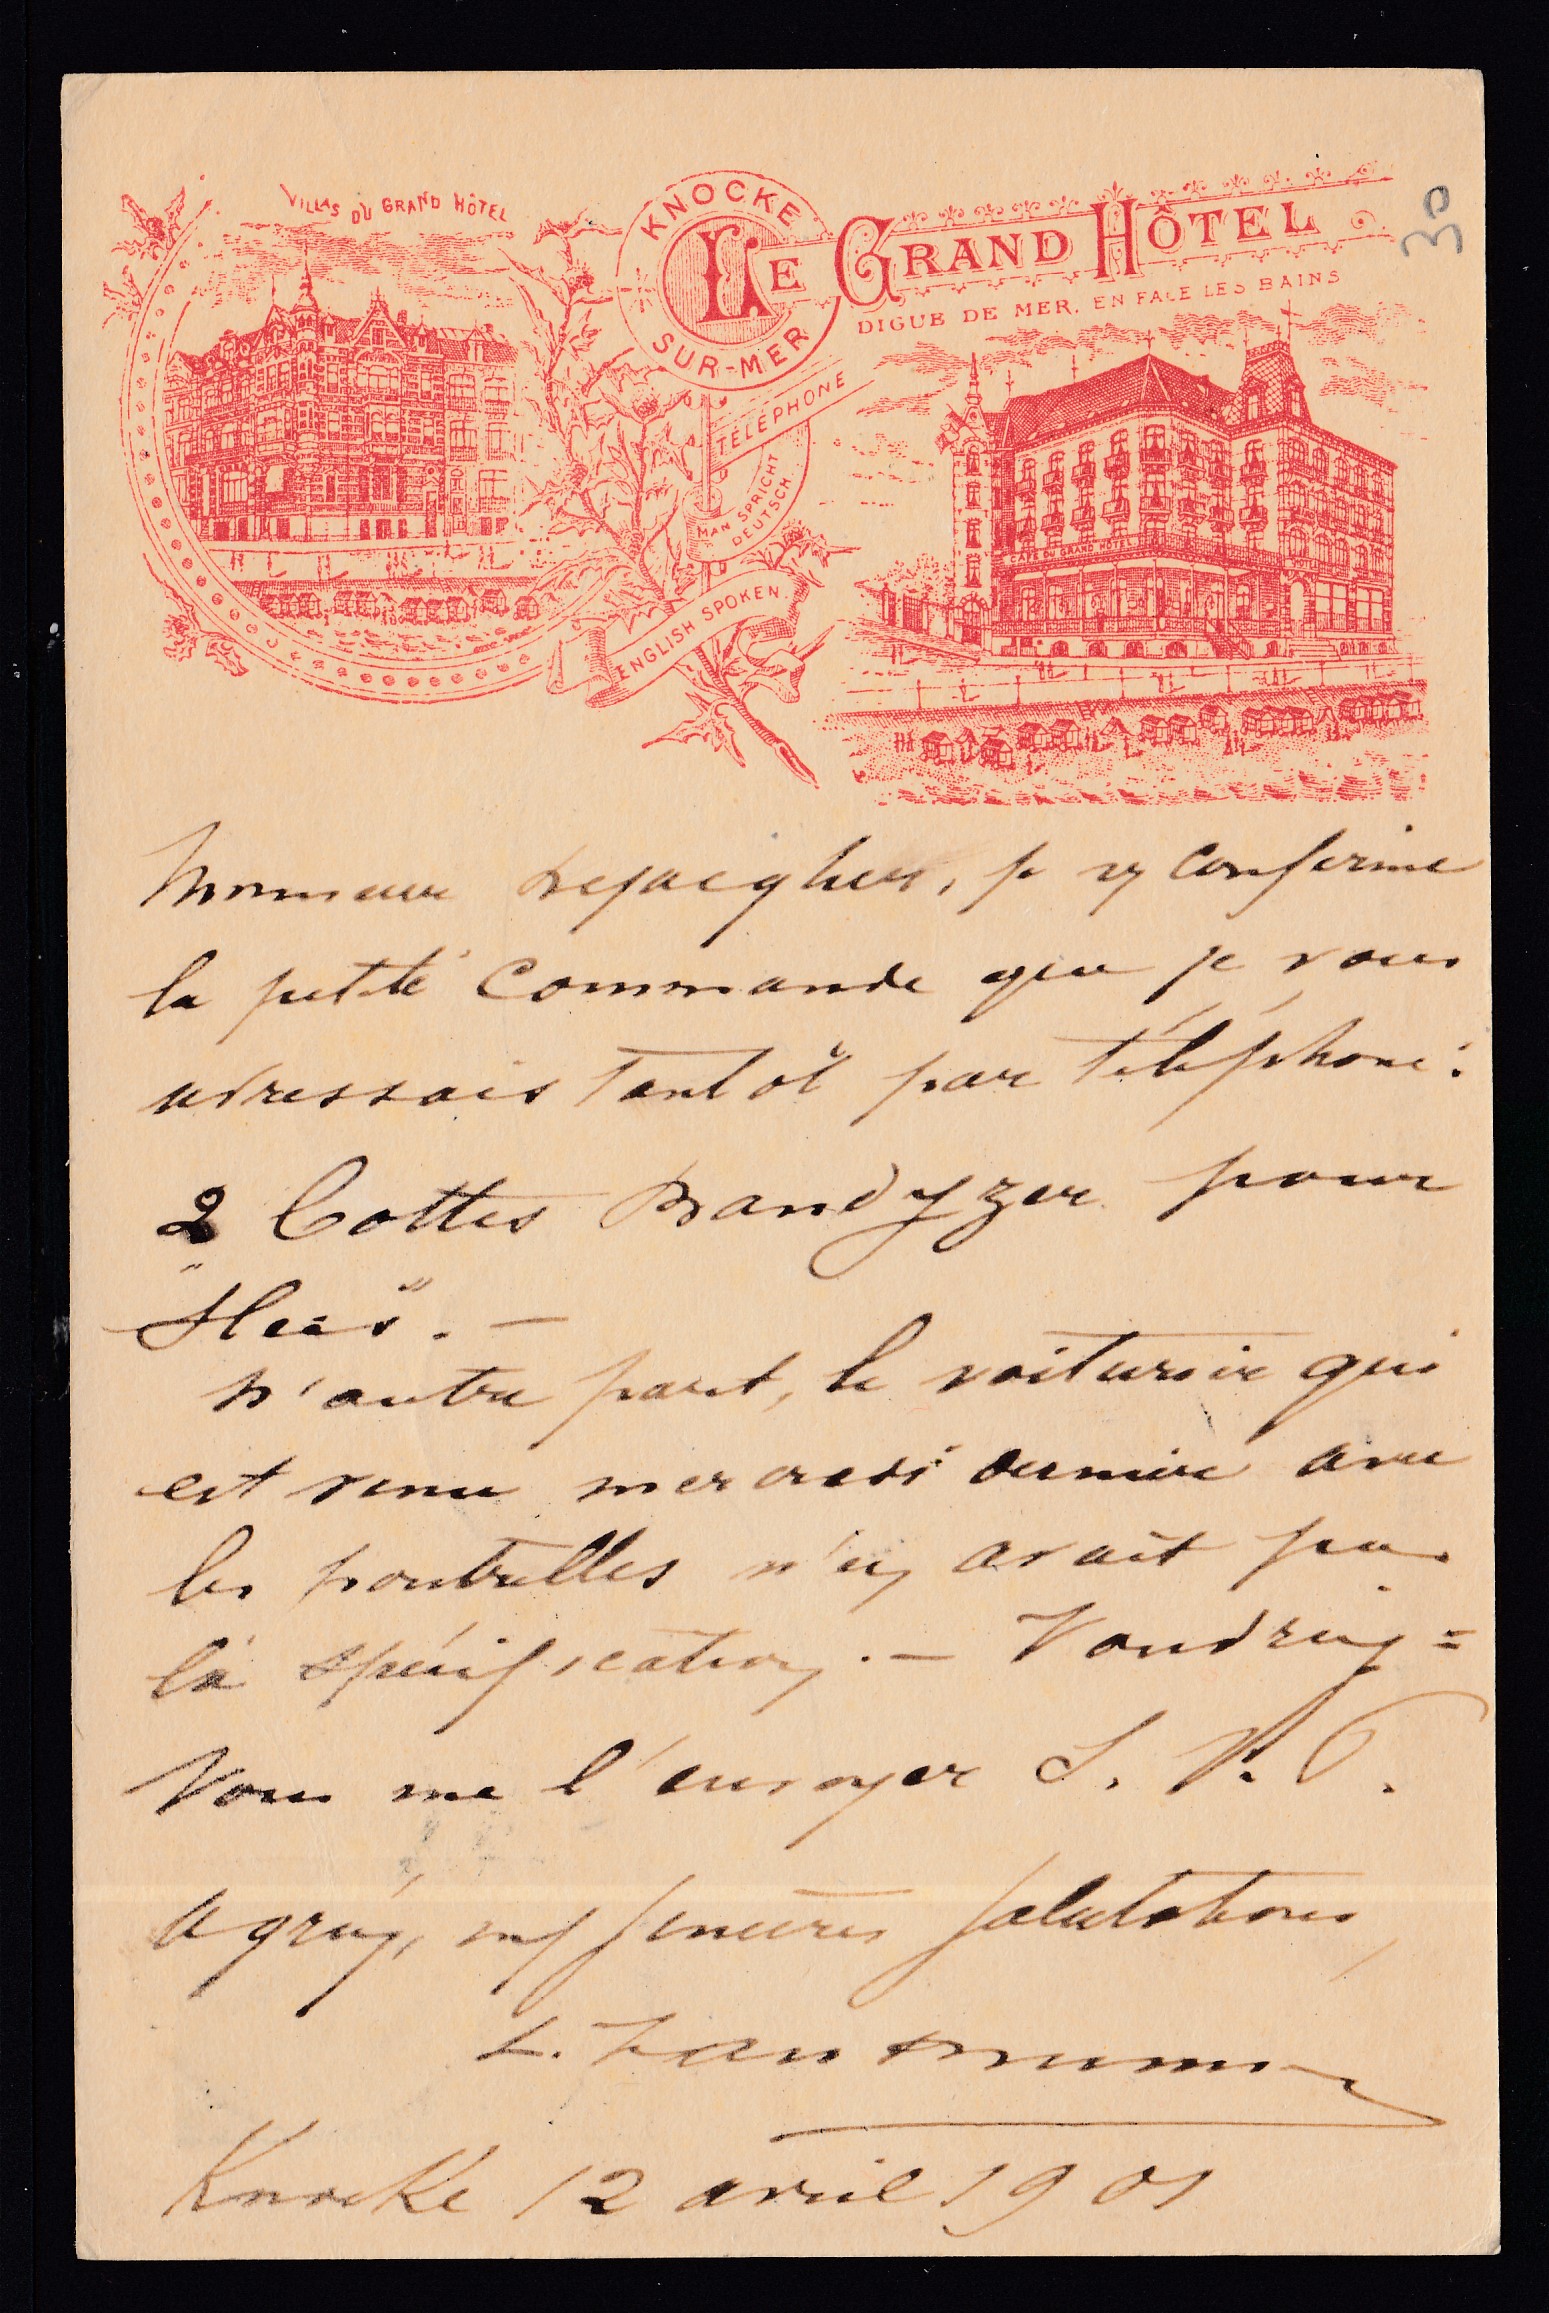 VILLAS DU GRAND HÔTEL
KNOCKE
SUR-MER
LE GRAND HÔTEL
DIGUE DE MER. EN FACE LES BAINS
30
TÉLÉPHONE
MAN SPRICHT
DEUTSCH
ENGLISH SPOKEN.
CAFÉ DU GRAND HÔTEL
HOTEL
Monsieur je confirme
la petite Commande que je vous
adressais tantôt par téléphone:
2 Bottes pour
D'autre part, le voiturier qui
est venu mercredi dernier avec
les poutrelles n'en avait pas
la spécification. — Voudriez=
Vous me l'envoyer S. V. P.
agréez, mes sincères salutations,
L.
Knocke 12 avril 1901